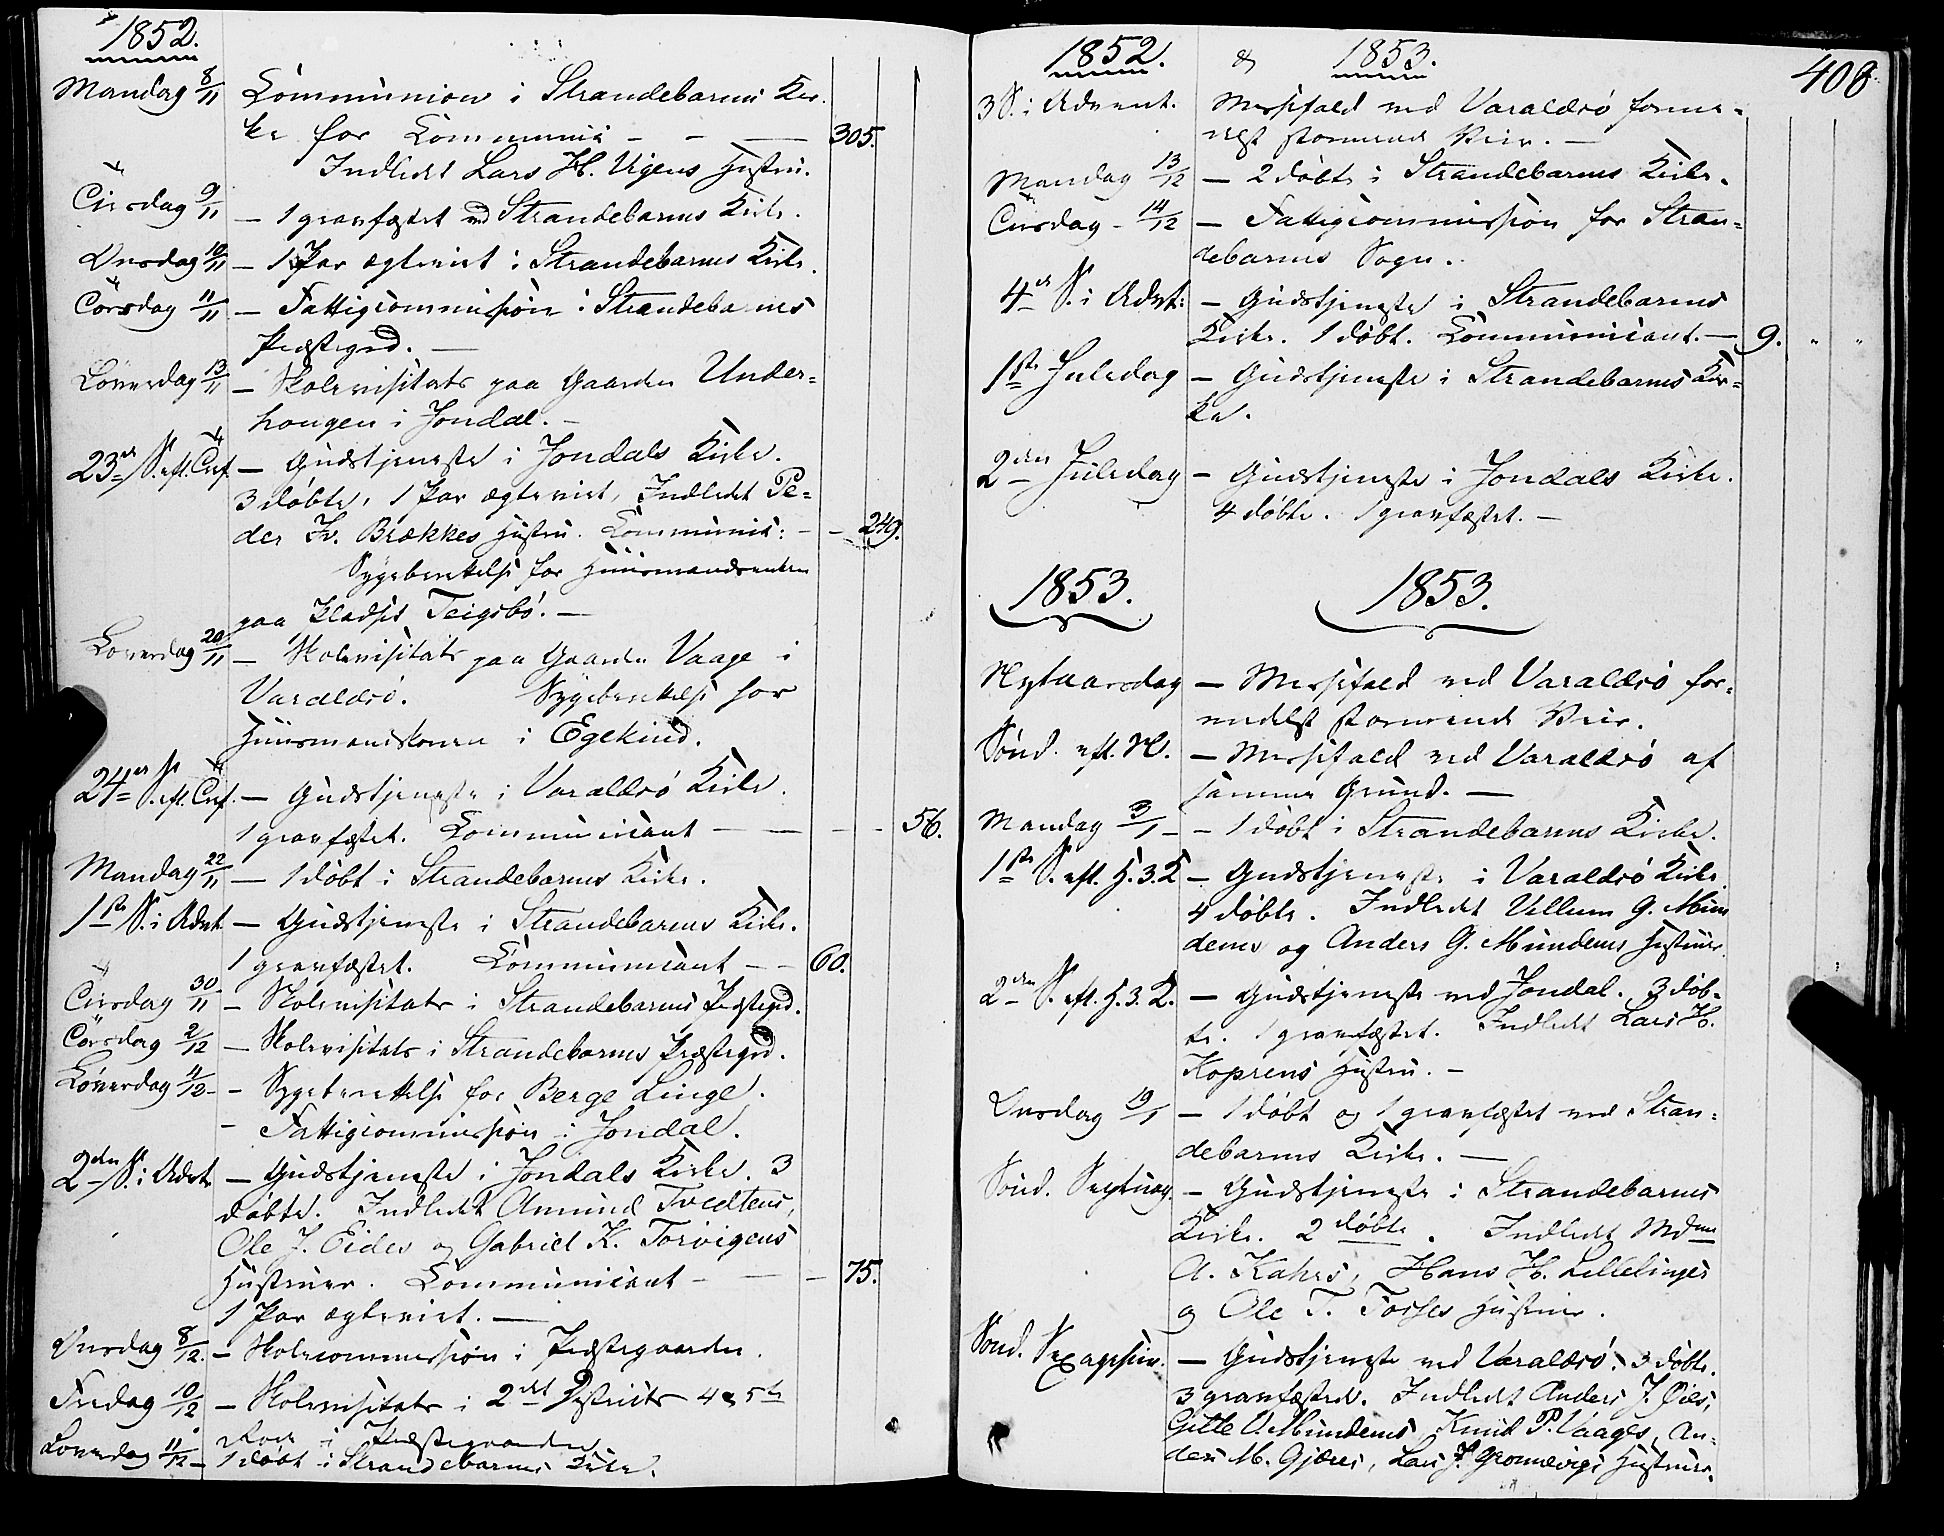 1852.
Mandag 8/11 Communion i Strandebarms Kir-
ke for Communic - - - 305.
Indledt Lars H. Vigens Hustru.
Tirsdag 9/11 - 1 gravfæstet ved Strandebarms Kirke.
Onsdag 10/11 - 1 Par ægteviet i Strandebarms Kirke.
Torsdag 11/11 - Fattigcommission i Strandebarms
Præstegrd. -
Löverdag 13/11 - Skolevisitats paa Gaarden Under-
haugen i Jondal. -
23de S. eft. Tref. - Gudstjeneste i Jondals Kirke.
3 döbte, 1 Par ægteviet, Indledt Pe-
der Iv. Brækkes Hustru. Communic: - - 249.
Sygeberettelse for Huusmandsenken
paa Pladset Teigsbö. -
Löverdag 20/11 - Skolevisitats paa Gaarden Vaage i
Varaldsö. Sygeberettelse for
Huusmandskonen i Egekind.
24de S. eft. Tref. - Gudstjeneste i Varaldsö Kirke.
1 gravfæstet. Communicant - - - - 56.
Mandag 22/11 - 1 döbt i Strandebarms Kirke.
1ste S. i Advt. - Gudstjeneste i Strandebarms Kirke.
1 gravfæstet. Communicant - - 60.
Tirsdag 30/11 - Skolevisitats i Strandebarms Præstegrd.
Torsdag 2/12 - Skolevisitats i Strandebarms Præstegrd.
Löverdag 4/12 - - Sygeberettelse for Berge Linge.
- Fattigcommission i Jondal.
2den S. i Advt. - Gudstjeneste i Jondals Kirke. 3
döbte. Indledt Amund Tvedtens,
Ole J. Eides og Gabriel K. Torvigens
Hustruer. Communicant - - - 75.
1 Par ægteviet. -
Onsdag 8/12. - Skolecommission i Præstegaarden.
Fredag 10/12 - Skolevisitats i 2det District 4 & 5te
Rode i Præstegaarden
Löverdag 11/12 - 1 döbt i Strandebarms Kirke.
1852. & 1853. 408
3 S. i Advent. Messefald ved Varaldsö forme-
delst stormende Veir. -
Mandag 13/12 - 2 döbte i Strandebarms Kirke.
Tirsdag - 14/12 - Fattigcommission for Stran-
debarms Sogn.
4de S. i Advt: - Gudstjeneste i Strandebarms
Kirke. 1 döbt. Communicant. - 9. " "
1ste Juledag - Gudstjeneste i Strandebarms Kir-
ke.
2den Juledag - Gudstjeneste i Jondals Kirke.
4 döbte. 1 gravfæstet. -
1853. 1853.
Nytaarsdag - Messefald ved Varaldsö for-
medelst stormende Veir.
Sönd. eft. N. - Messefald ved Varaldsö af
samme Grund. -
Mandag 3/1 - - 1 döbt i Strandebarms Kirke.
1ste S. eft. H. 3. K - Gudstjeneste i Varaldsö Kirke.
4 döbte. Indledt Villum G. Mun
dems og Anders G. Mundems Hustruer.
2den S. eft. H. 3. K. - Gudstjeneste ved Jondal. 3 döb-
te. 1 gravfæstet. Indledt Lars H.
Koprens Hustru. -
Onsdag 19/1 - 1 döbt og 1 gravfæstet ved Stran-
debarms Kirke. -
Sönd. Septuag. - Gudstjeneste i Strandebarms
Kirke. 2 döbte. Indledt Mdme
A. Kahrs, Hans H. Lillelinges
og Ole T. Fosses Hustruer.
Sönd. Sexagesim. - Gudstjeneste ved Varaldsö. 3 döbte.
3 gravfæstede. Indledt Anders J. Öies,
Gitle V. Mundems, Knud P. Vaages, An-
ders M. Gjæres, Lars J. Grönnevigs Hustruer.